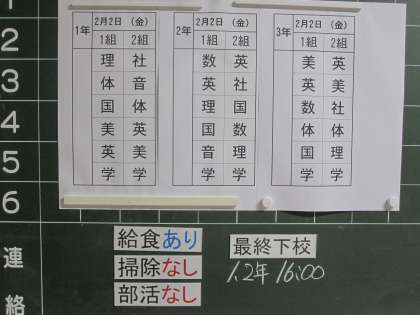 1年 2月2日 (金) 2年 2月2日 (金) 3年 2月2日 (金)
1組 2組 1組 2組 1組 2組
2 理 社 数 英 美 英
体 音 英 社 英 美
3 国 体 理 国 数 社
4 美 英 国 数 体 体
5 英 美 音 理 国 理
学 学 学 学 学 学
6
連絡
給食あり
掃除なし
部活なし
最終下校
1.2年 16:00